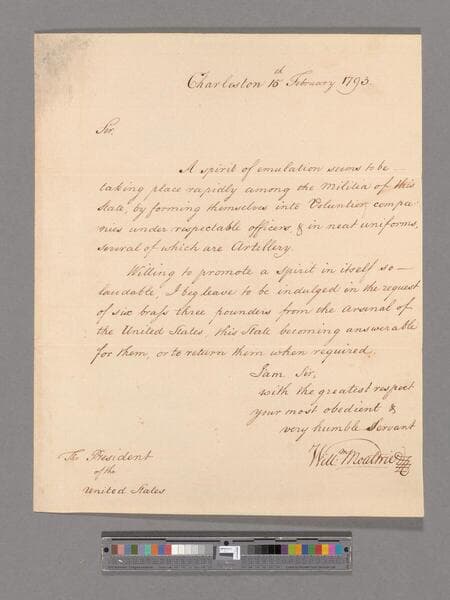 Charleston 15th February 1793.
Sir.
A spirit of emulation seems to be
taking place rapidly among the Militia of this
State, by forming themselves into Volunteer compa-
nies under respectable officers, & in neat uniforms,
several of which are Artillery.
Willing to promote a spirit in itself so
laudable, I beg leave to be indulged in the request
of six brass three pounders from the arsenal of
the United States, this State becoming answerable
for them, or to return them when required.
I am Sir,
with the greatest respect
your most obedient &
very humble Servant
Willm Moultrie
The President
of the
United States